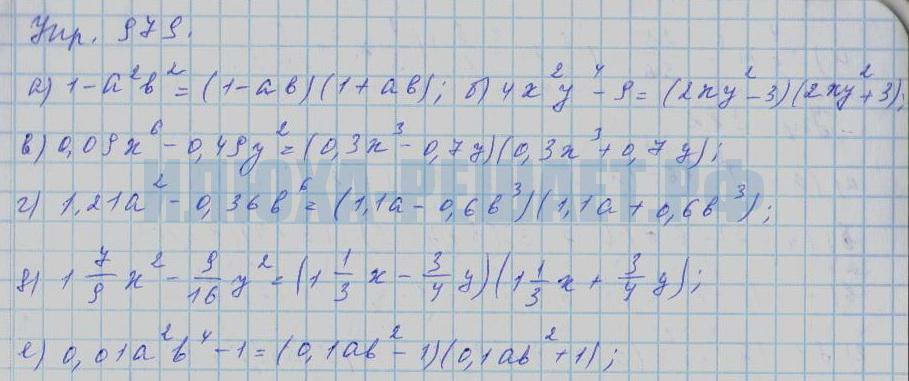 Упр. 979.
а) 1-a²b² = (1-ab)(1+ab); б) 4x²y⁴-9 = (2xy²-3)(2xy²+3);
в) 0,09x⁶ - 0,49y² = (0,3x³-0,7y)(0,3x³+0,7y);
г) 1,21a² - 0,36b⁶ = (1,1a-0,6b³)(1,1a+0,6b³);
д) 1 7/9 x² - 9/16 y² = (1 1/3 x - 3/4 y)(1 1/3 x + 3/4 y);
е) 0,01a²b⁴-1 = (0,1ab²-1)(0,1ab²+1);
ИЛЮХА-РЕШАЕТ.РФ